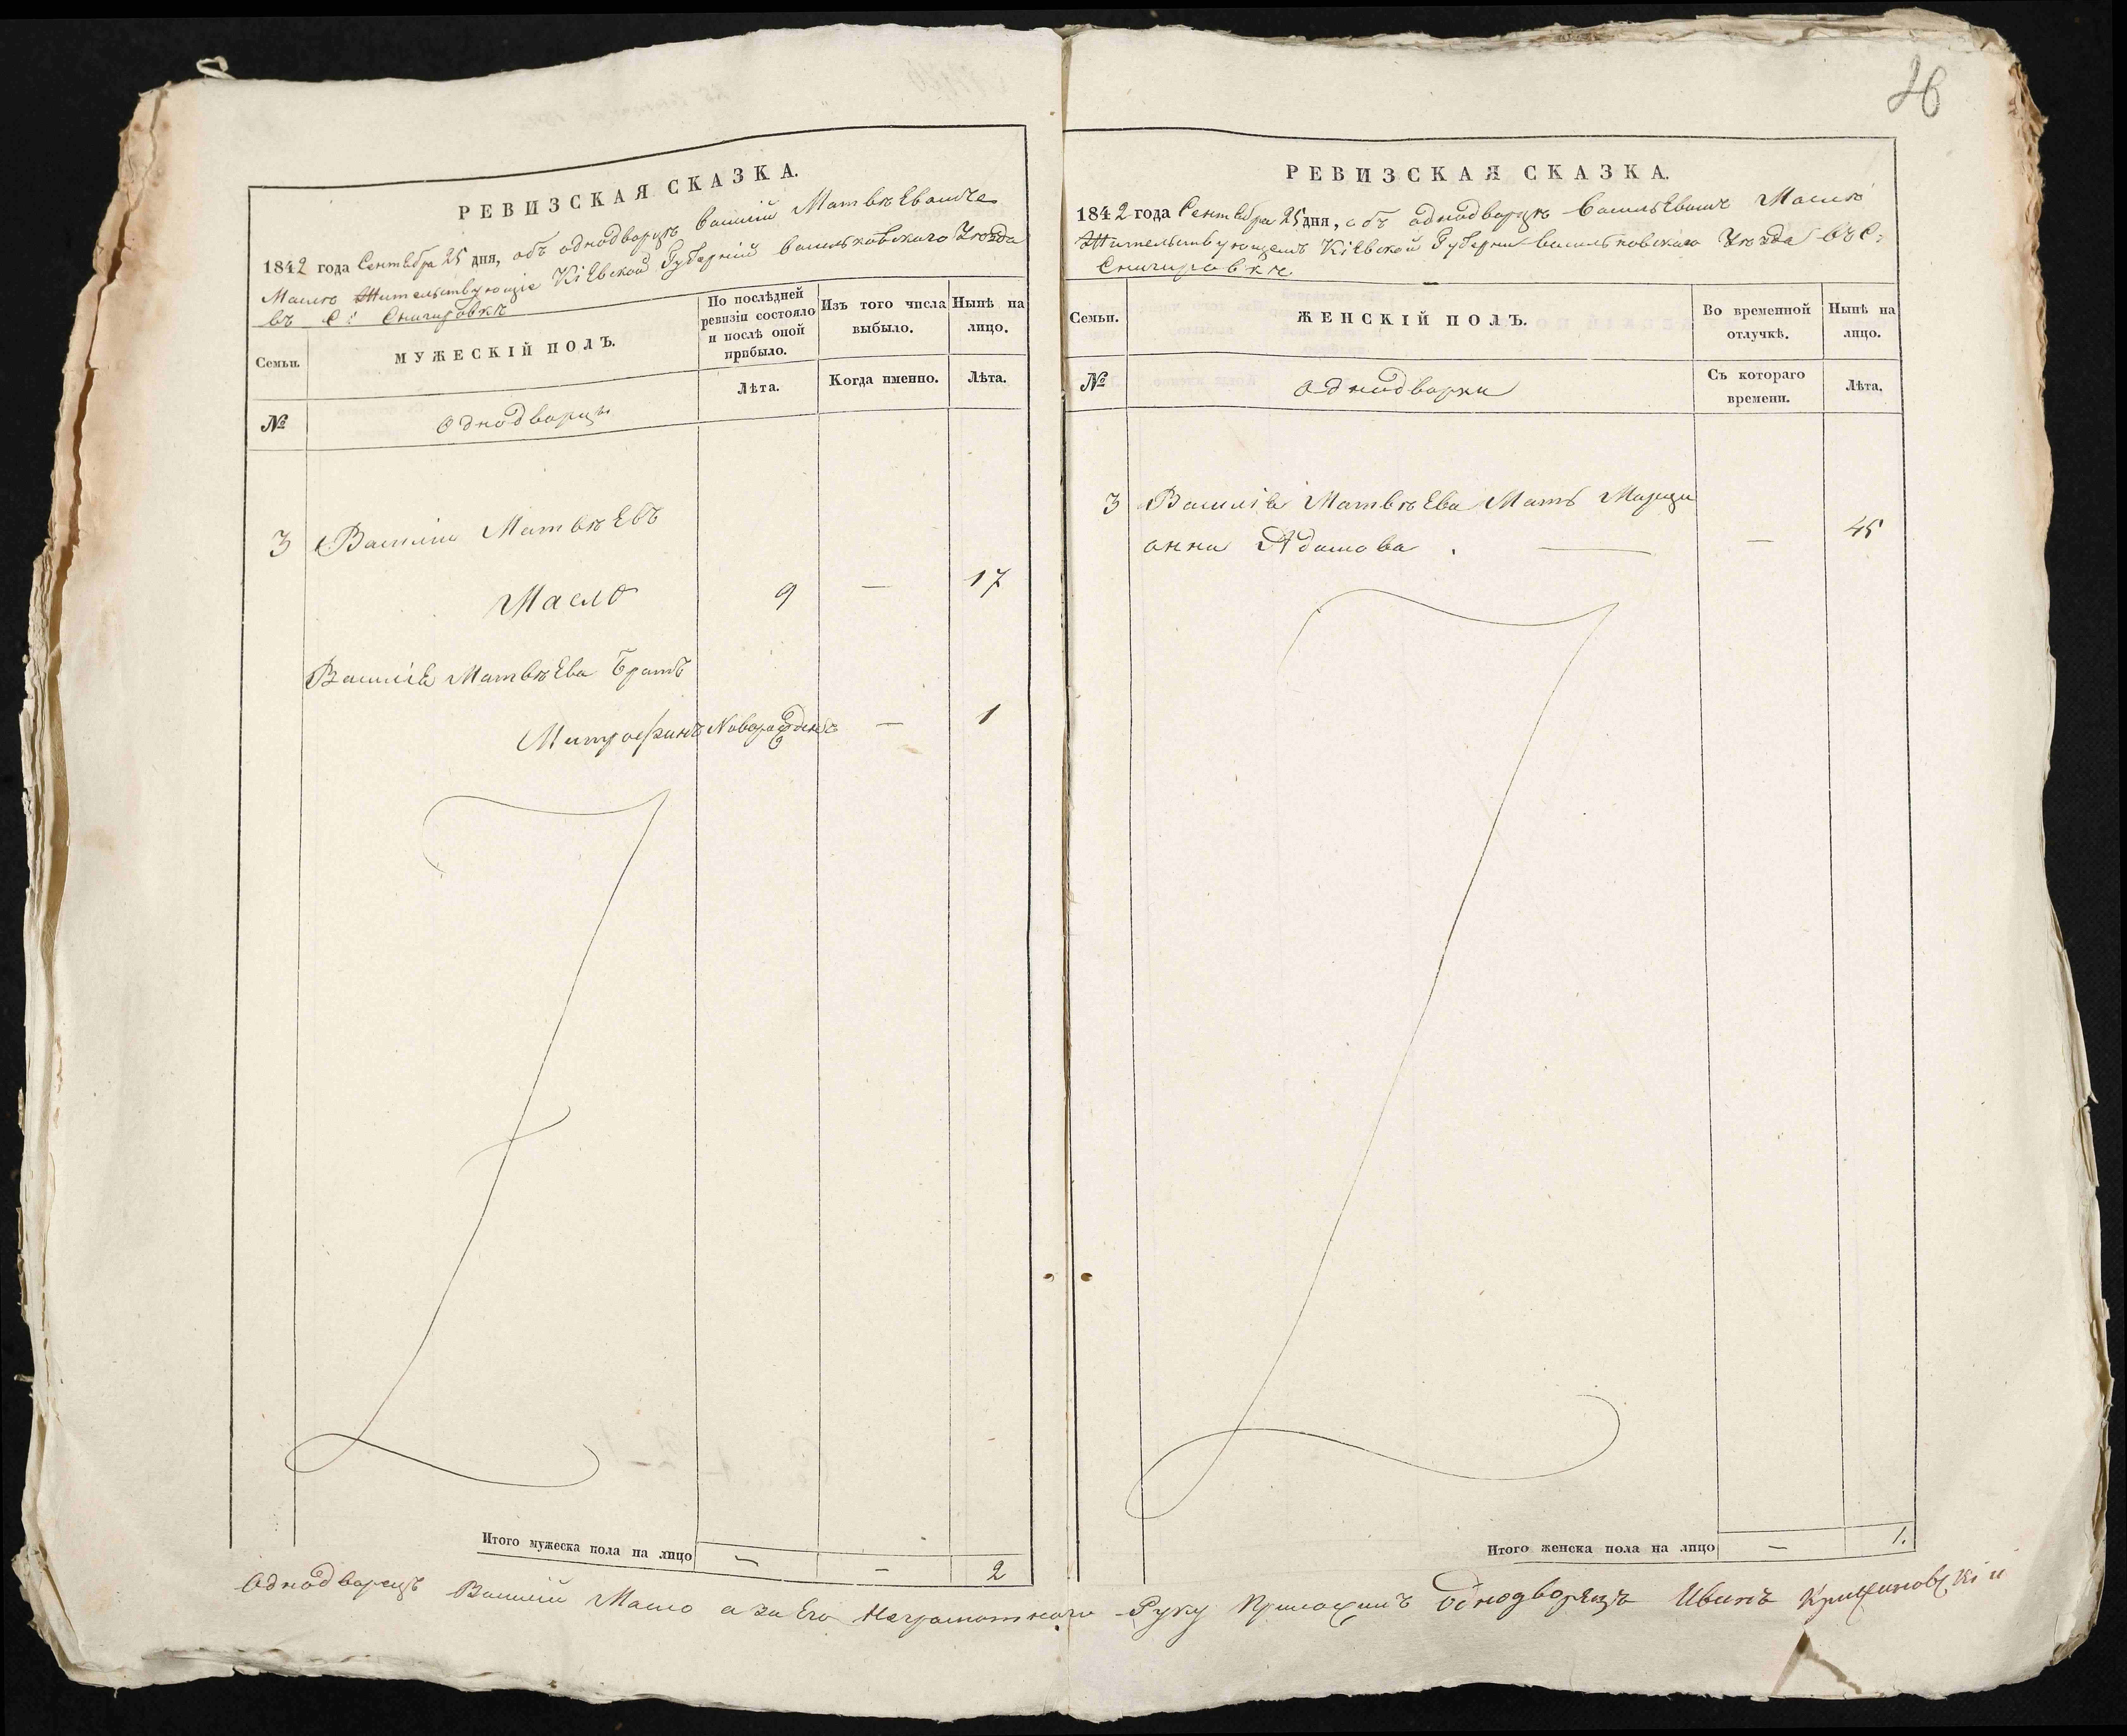 26
РЕВИЗСКАЯ СКАЗКА.
1842 года Сентебра 25 дня, объ однодворцѣ Василіи Матвѣевиче
Масло Жительствующіе Кіевской Губерніи Васильковскаго Уѣзда
въ С: Снигировкѣ
Семьи.
МУЖЕСКІЙ ПОЛЪ.
По послѣдней ревизіи состояло и послѣ оной прибыло.
Изъ того числа выбыло.
Нынѣ на лицо.
Лѣта.
Когда именно.
Лѣта.
№
Однодворцы
3 Василии Матвѣевъ
Масло 9 — 17
Василіе Матвѣева Братъ
Митрофанъ Новорожденъ — 1
Итого мужеска пола на лицо — — 2
РЕВИЗСКАЯ СКАЗКА.
1842 года Сентебра 25 дня, объ однодворцѣ Васильевиче Масло
Жительствующемъ Кіевской Губерніи Васильковскаго Уѣзда въ С:
Снигировке
Семьи.
ЖЕНСКІЙ ПОЛЪ.
Во временной отлучкѣ.
Нынѣ на лицо.
№
Однодворки
Съ котораго времени.
Лѣта.
3 Василіе Матвѣева Мать Марци
анна Адамова . — — 45
Итого женска пола на лицо — 1.
Однодворецъ Василій Масло а за Его Неграмотнаго Руку Приложилъ Однодворецъ Иванъ